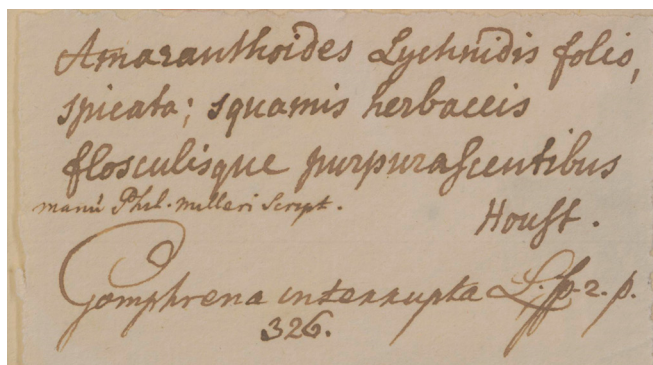 Amaranthoides Lychnidis folio,
spicata; squamis herbaceis
flosculisque purpurascentibus
manû Phil. Milleri Script.
Houst.
Gomphrena interrupta L. sp. 2. p.
326.